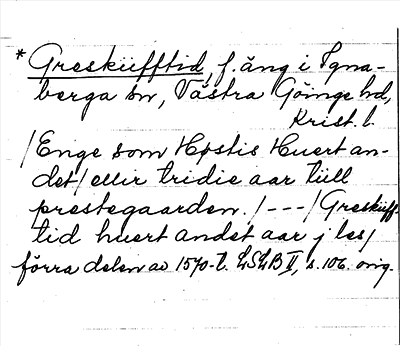 * Gresküfftid, f. äng i Igna-
berga sn, Västra Göinge hd,
Krist. l.
/Enge som Høstis Huert an-
det/ eller tridie aar tüll
prestegaarden. /---/ Gresküff-
tid huert andet aar j les/
förra delen av 1570-t. LSLB II, s. 106. orig.